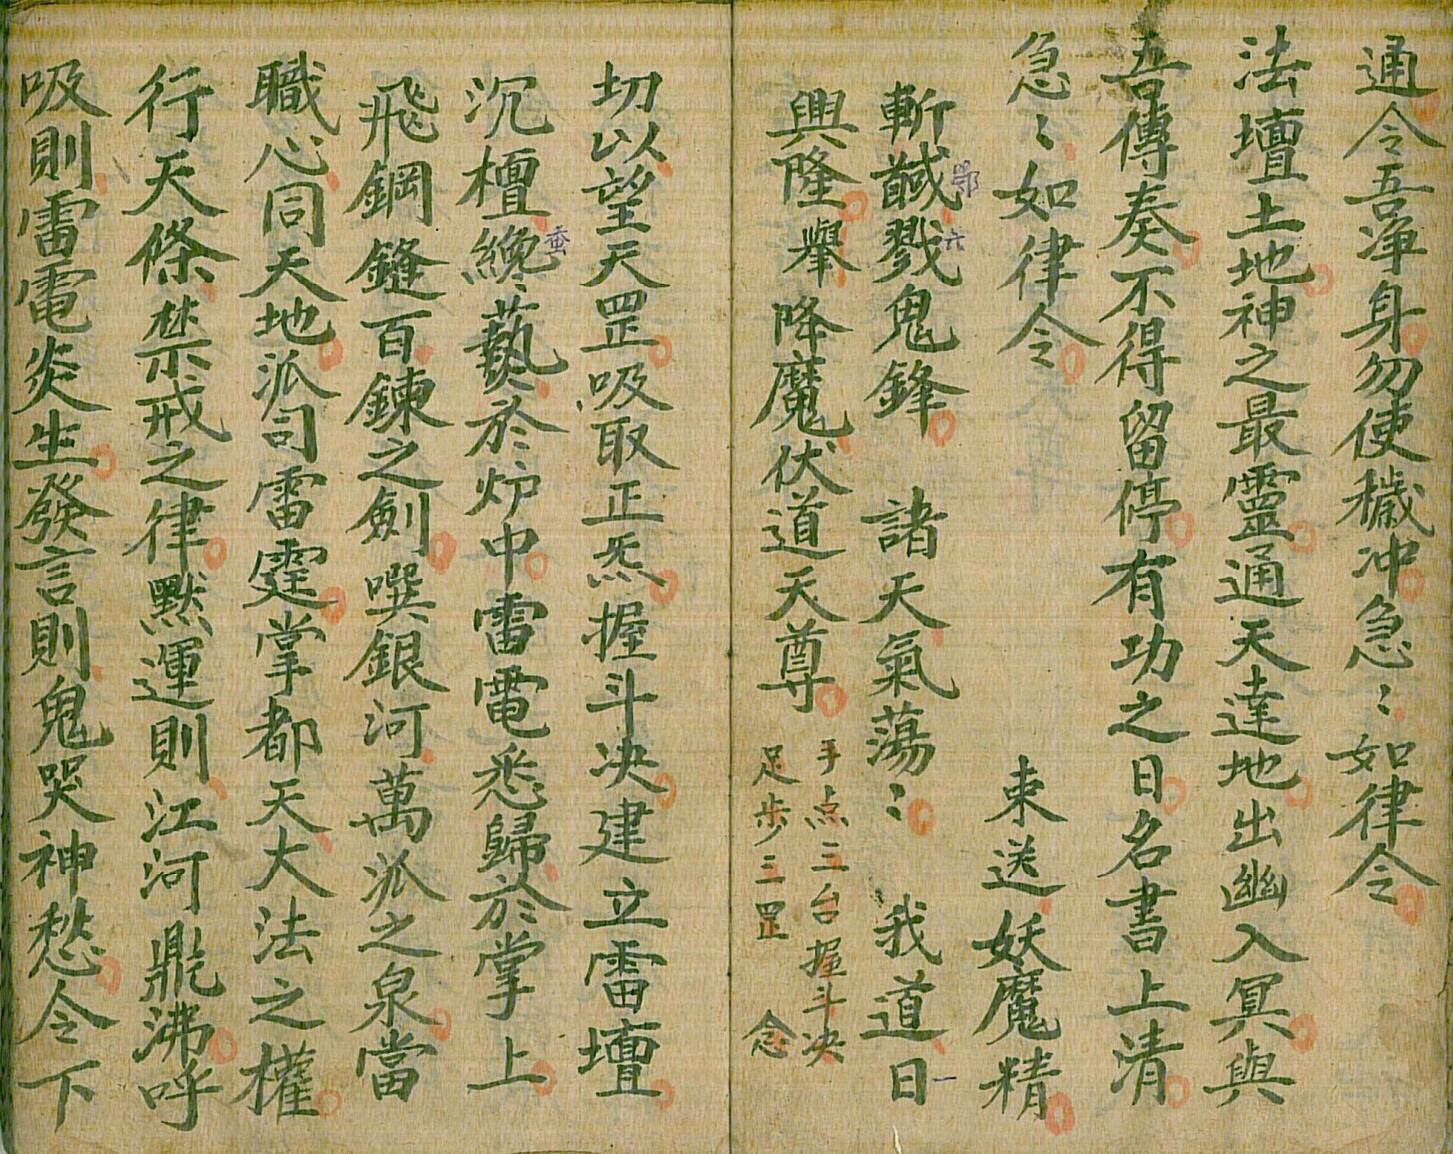 通令吾淨身勿使穢冲急〻如律令
法壇土地神之最靈通天達地出幽入冥與
吾傳奏不得留停有功之日名書上清
急〻如律令　束送妖魔精
斬馘戮鬼鋒　諸天氣蕩〻　我道日
鄂
六
興隆舉降魔伏道天尊
手点三台握斗决
足步三罡　念
切以望天罡吸取正炁握斗决建立雷壇
沉檀纔爇於炉中雷電悉歸於掌上
蚕
飛鋼鏠百鍊之劍噀銀河萬派之泉當
職心同天地派司雷霆掌都天大法之權
行天條禁戒之律默運則江河鼎沸呼
吸則雷電炎生發言則鬼哭神愁令下